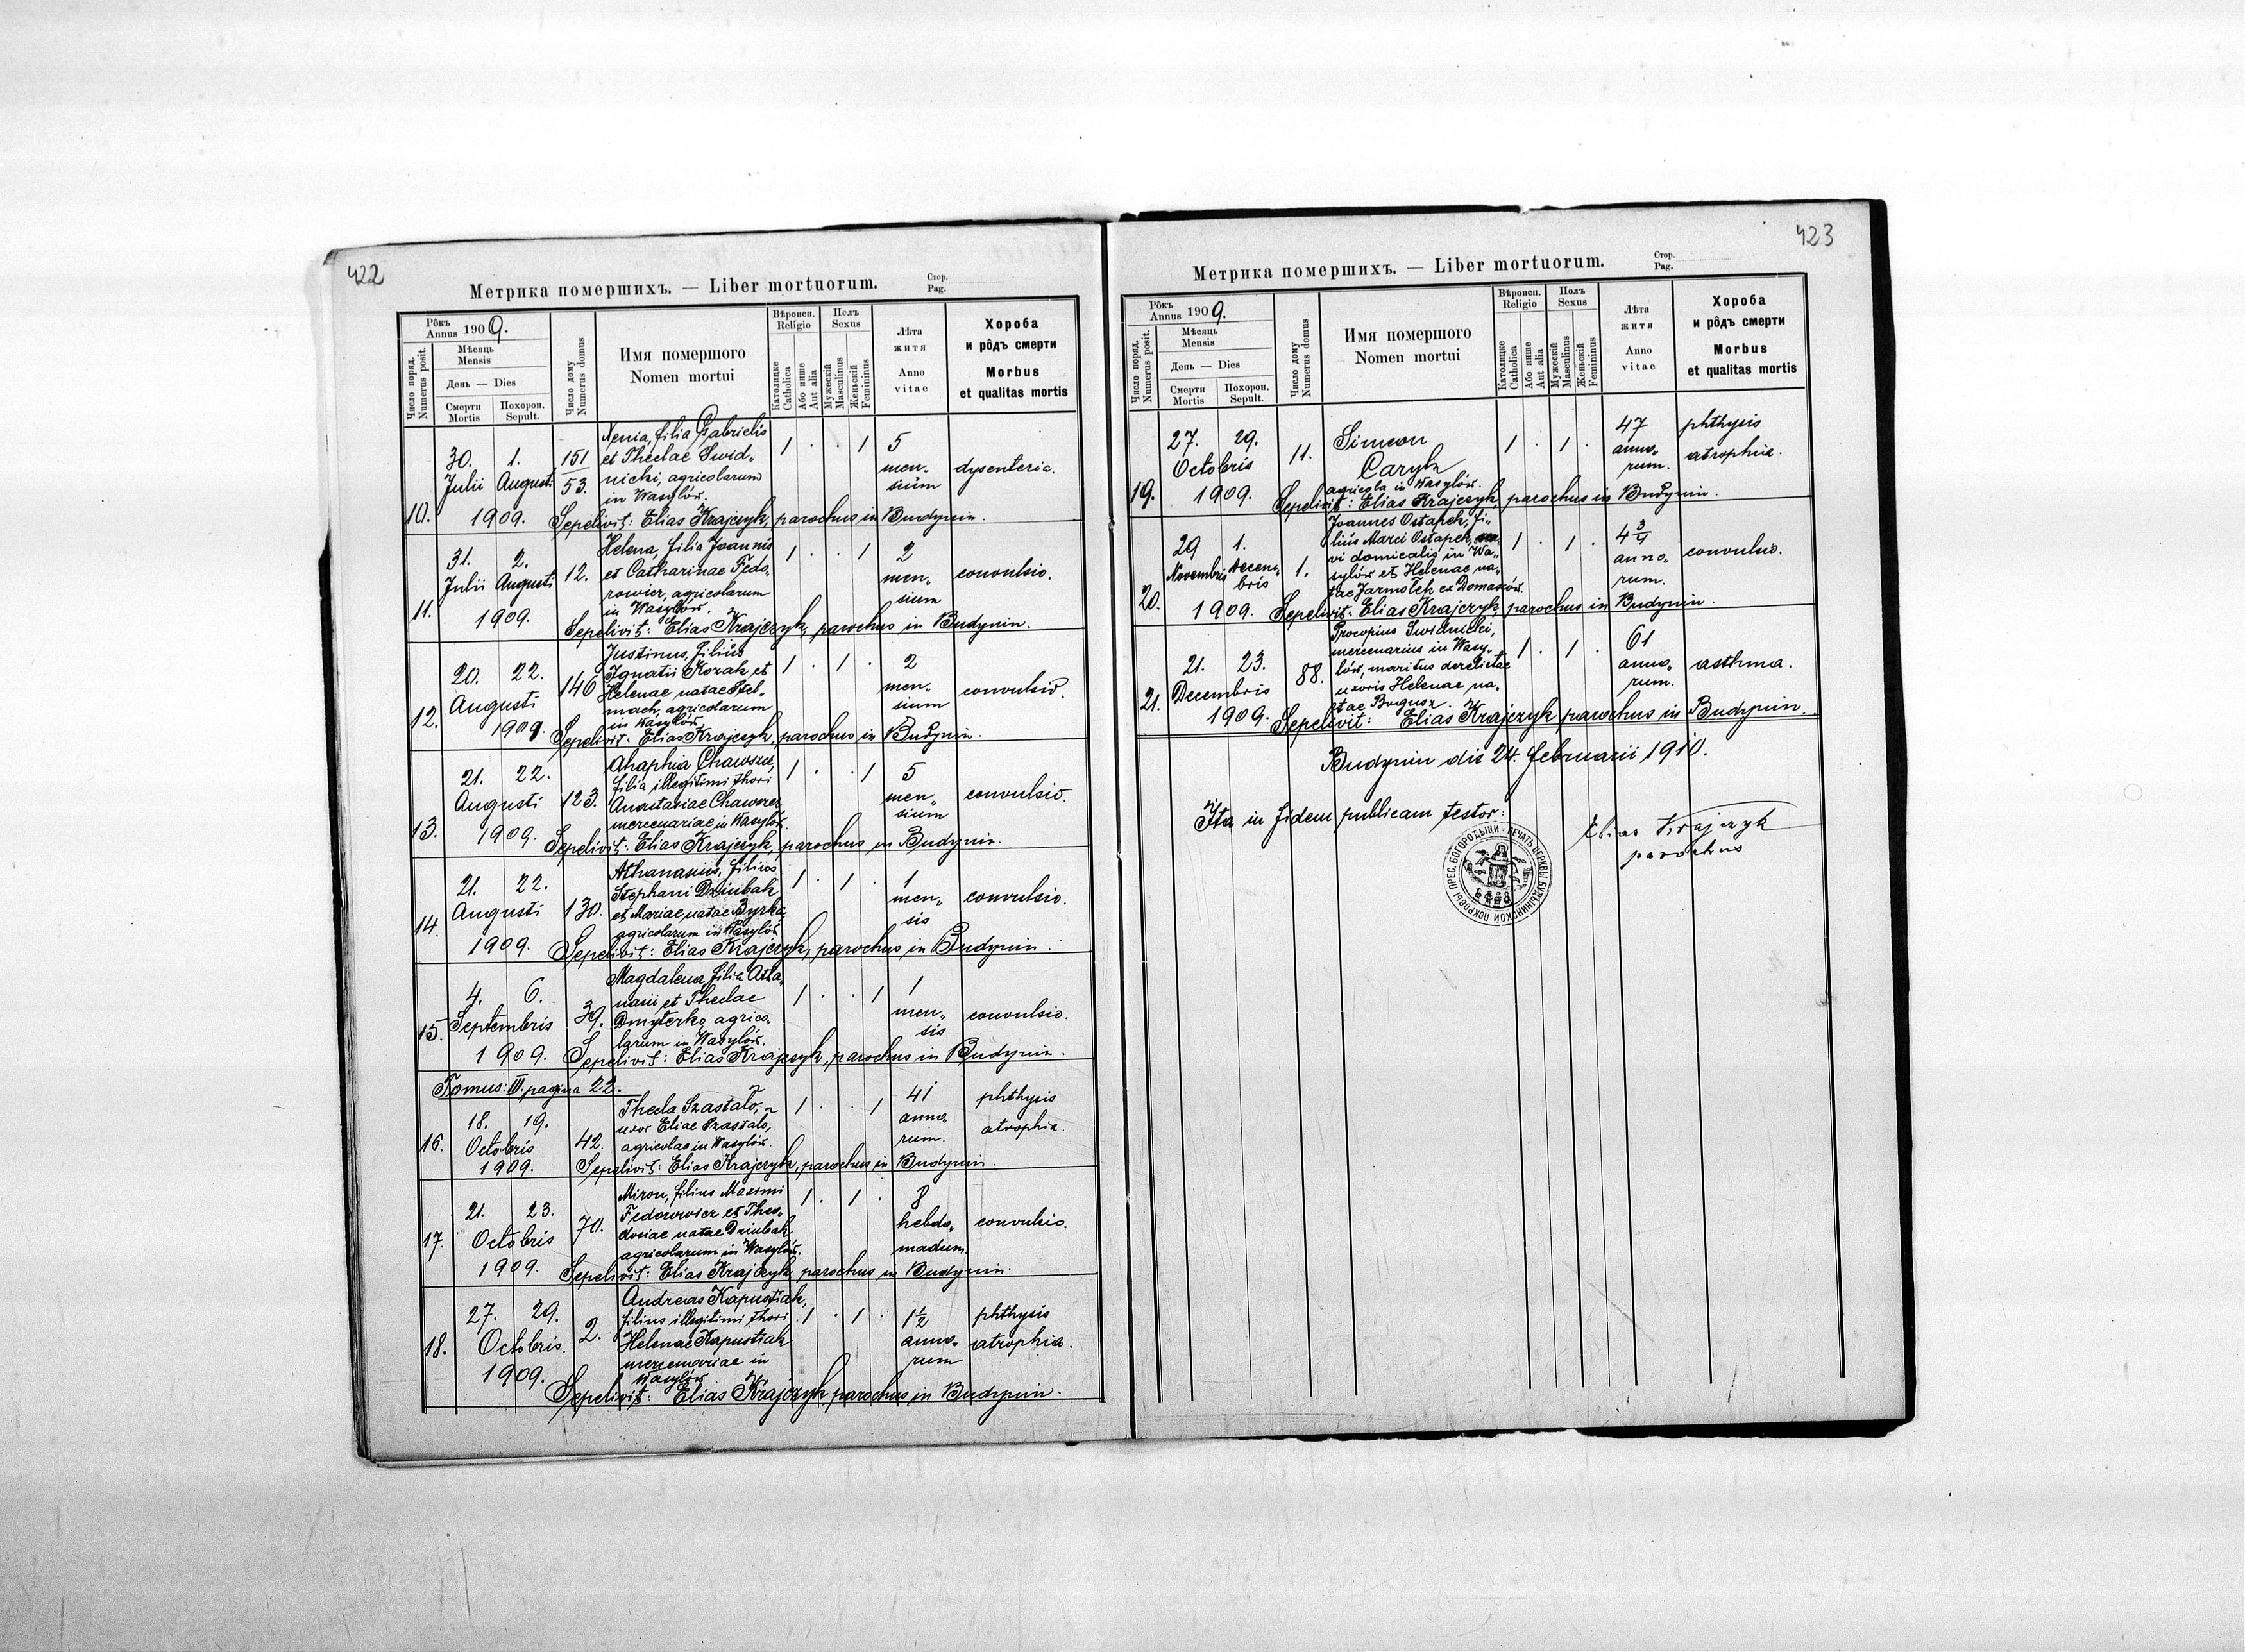 422
Метрика померших­ъ. — Liber mortuorum.
Стор.
Pag.
Рôкъ
Annus 1909.
Мѣсяць
Mensis
День — Dies
Смерти
Mortis
Похорон.
Sepult.
Число поряд.
Numerus posit.
Число дому
Numerus domus
Имя помершого
Nomen mortui
Вѣроисп.
Religio
Католицке
Catholica
Або инше
Aut alia
Полъ
Sexus
Мужескій
Masculinus
Женьскій
Femininus
Лѣта
житя
Anno
vitae
Хороба
и рôдъ смерти
Morbus
et qualitas mortis
10. 30. Julii 1. Augusti 1909. 151/53.
Xenia, filia Gabrielis
et Theclae Swid„
nicki, agricolarum
in Wasylów.
1 . . 1 5 men„ sium dysenteria.
Sepelivit: Elias Krajczyk, parochus in Budynin.
11. 31. Julii 2. Augusti 1909. 12.
Helena, filia Joannis
et Catharinae Fedo„
rowicz, agricolarum
in Wasylów.
1 . . 1 2 men„ sium convulsio.
Sepelivit: Elias Krajczyk, parochus in Budynin.
12. 20. 22. Augusti 1909. 146
Justinus, filius
Ignatii Kozak et
Helenae natae Stel„
mach, agricolarum
in Wasylów.
1 . 1 . 2 men„ sium convulsio.
Sepelivit: Elias Krajczyk, parochus in Budynin.
13. 21. 22. Augusti 1909. 123.
Ahaphia
filia illegitimi thori
Anastasiae
mercenariae in Wasylów.
1 . . 1 5 men„ sium convulsio.
Sepelivit: Elias Krajczyk, parochus in Budynin.
14. 21. 22. Augusti 1909. 130.
Athanasius, filius
Stephani Dziubak
et Mariae natae Byrka,
agricolarum in Wasylów
1 . 1 . 1 men„ sis convulsio.
Sepelivit: Elias Krajczyk, parochus in Budynin.
15. 4. 6. Septembris 1909. 39.
Magdalena, filia Atha„
nasii et Theclae
Dmyterko, agrico„
larum in Wasylów.
1 . . 1 1 men„ sis convulsio.
Sepelivit: Elias Krajczyk, parochus in Budynin.
Tomus: III. pagina 22.
16. 18. 19. Octobris 1909. 42.
Thecla Szastało,
uxor Eliae Szastało,
agricolae in Wasylów.
1 . . 1 41 anno„ rum. phthysis atrophia.
Sepelivit: Elias Krajczyk, parochus in Budynin.
17. 21. 23. Octobris 1909. 70.
Miron, filius Maximi
Fedorowicz et Theo„
dosiae natae Dziubak
agricolarum in Wasylów.
1 . 1 . 8 hebdo„ madum. convulsio.
Sepelivit: Elias Krajczyk, parochus in Budynin.
18. 27. 29. Octobris. 1909. 2.
Andreas Kapustiak,
filius illegitimi thori
Helenae Kapustiak
mercenariae in
Wasylów.
1 . 1 . 1½ anno„ rum phthysis atrophia.
Sepelivit: Elias Krajczyk, parochus in Budynin.
423
Метрика померших­ъ. — Liber mortuorum.
Стор.
Pag.
Рôкъ
Annus 1909.
Мѣсяць
Mensis
День — Dies
Смерти
Mortis
Похорон.
Sepult.
Число поряд.
Numerus posit.
Число дому
Numerus domus
Имя помершого
Nomen mortui
Вѣроисп.
Religio
Католицке
Catholica
Або инше
Aut alia
Полъ
Sexus
Мужескій
Masculinus
Женьскій
Femininus
Лѣта
житя
Anno
vitae
Хороба
и рôдъ смерти
Morbus
et qualitas mortis
19. 27. 29. Octobris 1909. 11.
Simeon
Caryk
agricola in Wasylów.
1 . 1 . 47 anno„ rum. phthysis atrophia.
Sepelivit: Elias Krajczyk, parochus in Budynin.
20. 29 Novembris 1. Decem„ bris 1909. 1.
Joannes Ostapek, fi„
lius Marci Ostapek,
vi domicalis in Wa„
sylów et Helenae na„
tae Jarmołek ex Domaszów.
1 . 1 . 4¾ anno„ rum. convulsio.
Sepelivit: Elias Krajczyk, parochus in Budynin.
21. 21. 23. Decembris 1909. 88.
Procopius Swidnicki,
mercenarius in Wasy„
lów, maritus derelictae
uxoris Helenae na„
tae Bogusz.
1 . 1 . 61 anno„ rum. asthma.
Sepelivit: Elias Krajczyk parochus in Budynin.
Budynin die 24. februarii 1910.
Ita in fidem publicam testor:
Elias Krajczyk
parochus
ПЕЧАТЬ ЦЕРКВЫ БУДЫНИНСКОЙ ПОКРОВЫ ПРЕС. БОГОРОДЫЦИ